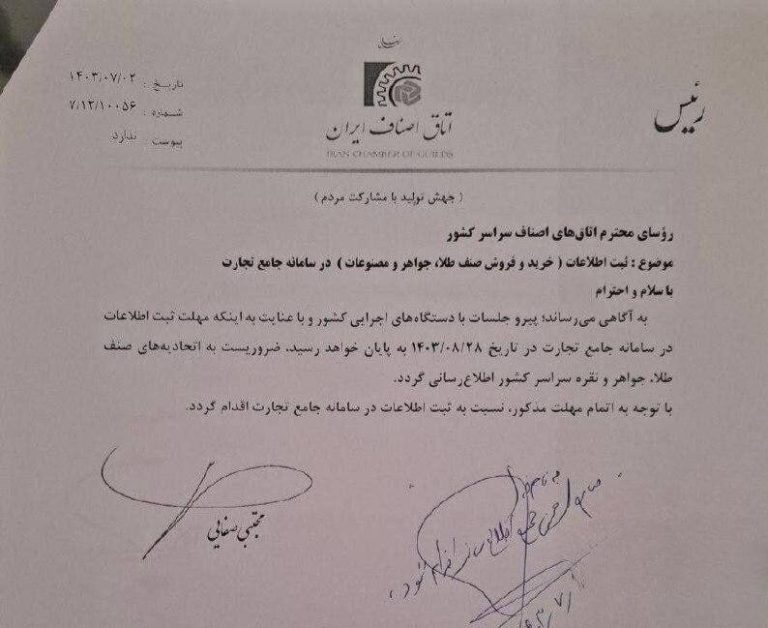 تاریخ : ۱۴۰۳/۰۷/۰۲
شماره : ۷/۱۲/۱۰۰۵۶
پیوست ندارد
اتاق اصناف ایران
IRAN CHAMBER OF GUILDS
رئیس
( جهش تولید با مشارکت مردم )
رؤسای محترم اتاق‌های اصناف سراسر کشور
موضوع : ثبت اطلاعات ( خرید و فروش صنف طلا، جواهر و مصنوعات ) در سامانه جامع تجارت
با سلام و احترام
به آگاهی می‌رساند؛ پیرو جلسات با دستگاه‌های اجرایی کشور و با عنایت به اینکه مهلت ثبت اطلاعات
در سامانه جامع تجارت در تاریخ ۱۴۰۳/۰۸/۲۸ به پایان خواهد رسید، ضروریست به اتحادیه‌های صنف
طلا، جواهر و نقره سراسر کشور اطلاع‌رسانی گردد.
با توجه به اتمام مهلت مذکور، نسبت به ثبت اطلاعات در سامانه جامع تجارت اقدام گردد.
مجتبی صفایی